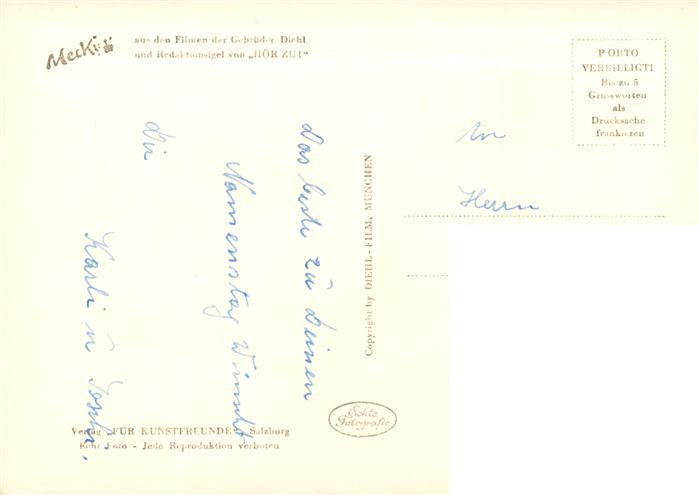 Mecki
aus den Filmen der Gebrüder Diehl
und Redaktionsigel von „HÖR ZU!"
PORTO
VERBILLIGT!
Bis zu 5
Grussworten
als
Drucksache
frankieren
An
Herrn
Das beste zu Deinen
Namenstag wünscht
dir
Karli u
Copyright by DIEHL-FILM, MÜNCHEN
Echte
Fotografie
Verlag „FÜR KUNSTFREUNDE" Salzburg
Echt Foto - Jede Reproduktion verboten